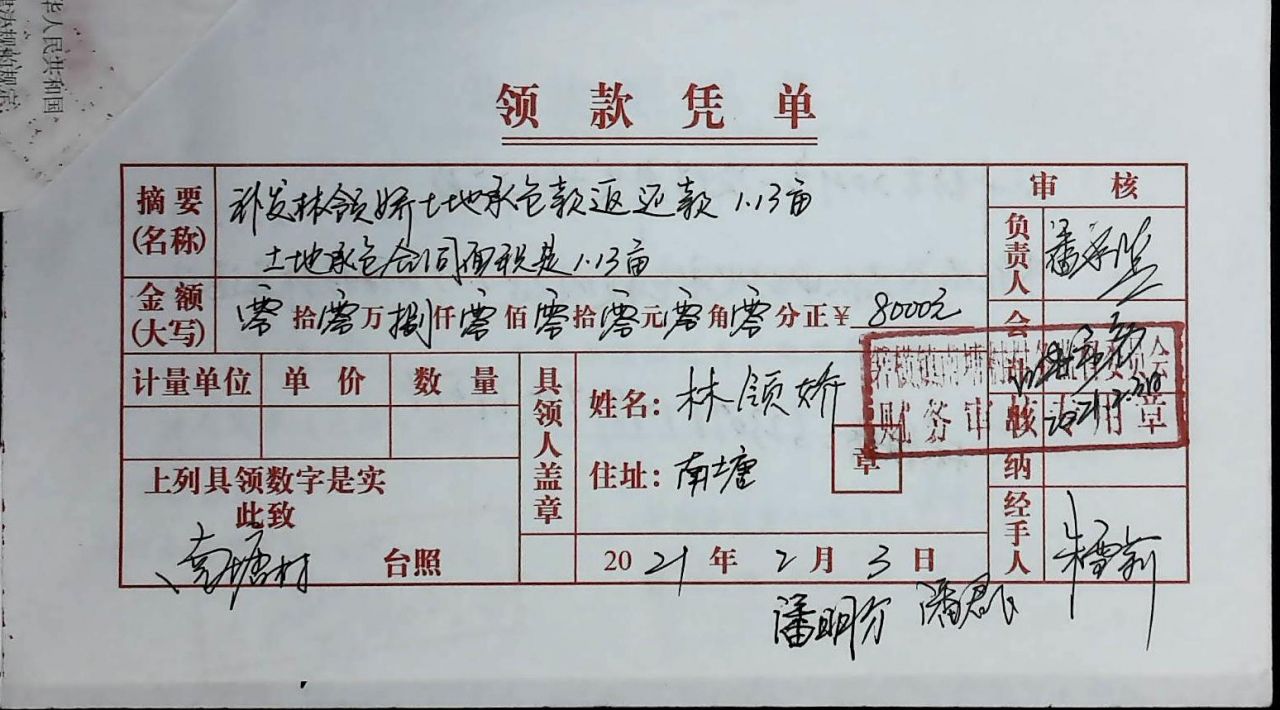 华人民共和国
领款凭单
摘要
(名称)
补发林领娇土地承包款返还款1.13亩
土地承包合同面积是1.13亩
金额
(大写)
零拾零万捌仟零佰零拾零元零角零分正¥8000元
审核
负责人
会
计量单位 单价 数量
具领人盖章
姓名：林领娇
住址：南塘
章
财务审核专用章
纳
上列具领数字是实
此致
南塘村 台照
2021年2月3日
经手人
潘明芬